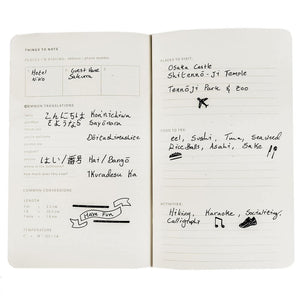 THINGS TO NOTE
Hotel
NiKO
Guest House
Sakura
COMMON TRANSLATIONS
こんにちは Konnichiwa
さようなら Sayōnara
Dōitashimashite
はい/番号 Hai/Bangō
Ikuradesu Ka
COMMON CONVERSIONS
LENGTH
Have Fun
TEMPERATURE
PLACES TO VISIT
Osaka Castle
Shitennō-Ji Temple
Tennōji Park & Zoo
FOOD TO TRY
eel, Sushi, Tuna, Seaweed
Rice Balls, Asahi, Sake
ACTIVITIES
Hiking, Karaoke, Socialising,
Calligraphy